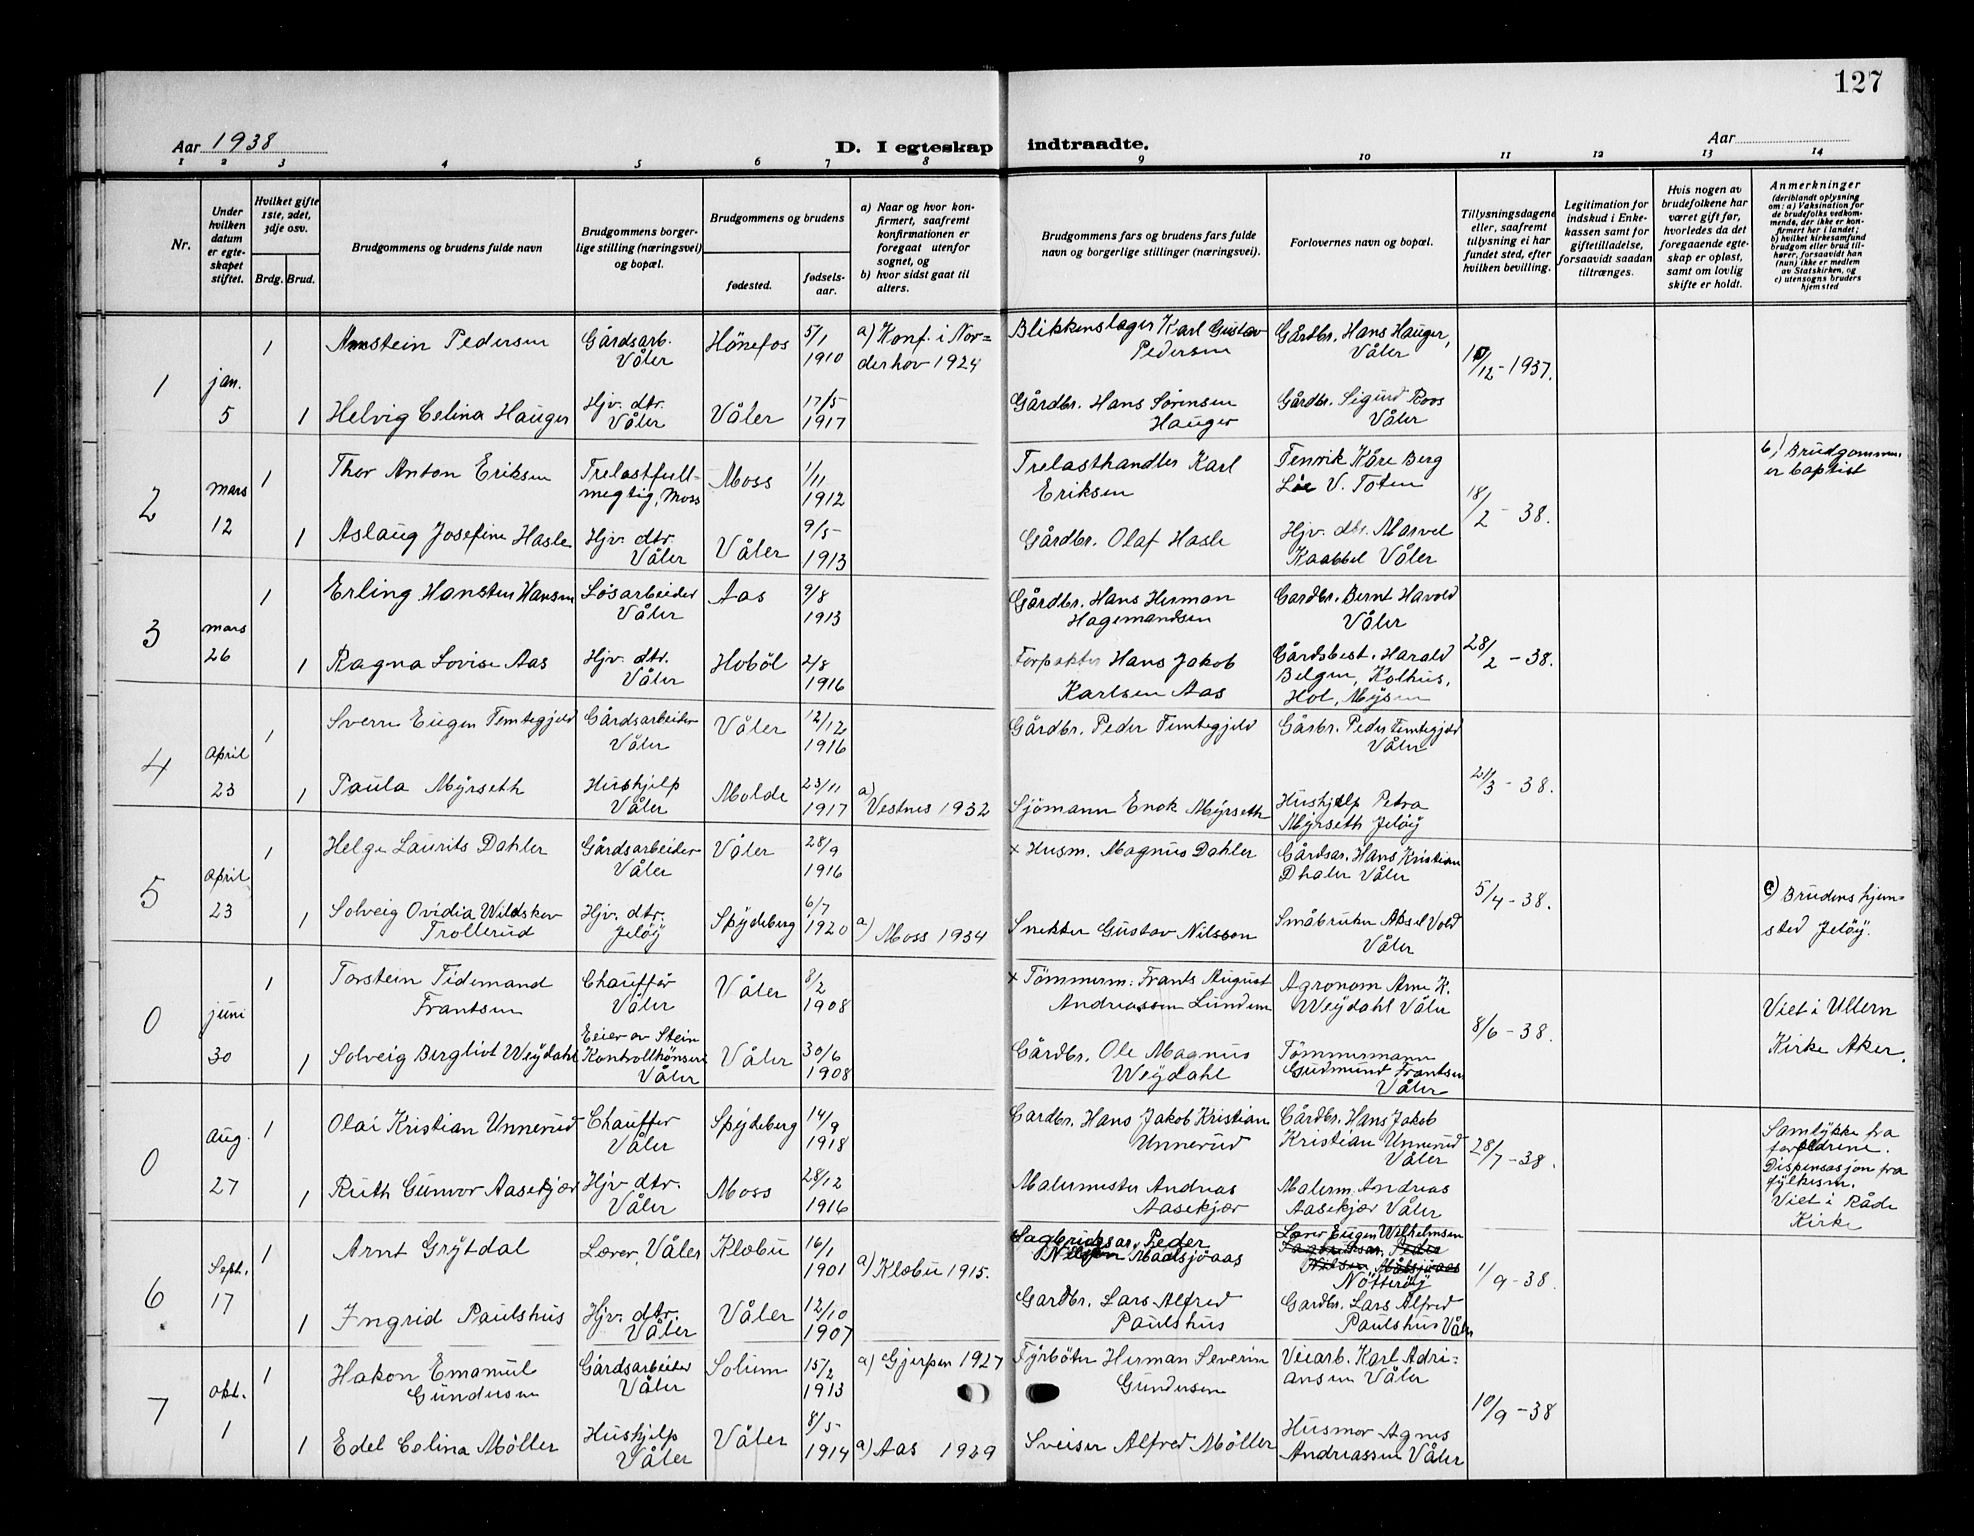 127
Aar 1938
D. I egteskap indtraadte.
Aar
1 2 3 4 5 6 7 8 9 10 11 12 13 14
Nr.
Under hvilken datum er egte-skapet stiftet.
Hvilket gifte 1ste, 2det, 3dje osv.
Brdg. Brud.
Brudgommens og brudens fulde navn
Brudgommens borger-lige stilling (næringsvei) og bopæl.
Brudgommens og brudens
fødested.
fødsels-aar.
a) Naar og hvor kon-firmert, saafremt konfirmationen er foregaat utenfor sognet, og
b) hvor sidst gaat til alters.
Brudgommens fars og brudens fars fulde navn og borgerlige stillinger (næringsvei).
Forlovernes navn og bopæl.
Tillysningsdagene eller, saafremt tillysning ei har fundet sted, efter hvilken bevilling.
Legitimation for indskud i Enke-kassen samt for giftetilladelse, forsaavidt saadan tiltrænges.
Hvis nogen av brudefolkene har været gift før, hvorledes da det foregaaende egte-skap er opløst, samt om lovlig skifte er holdt.
Anmerkninger
(deriblandt oplysning om: a) Vaksination for de brudefolks vedkom-mende, der ikke er kon-firmert her i landet; b) hvilket kirkesamfund brudgom eller brud til-hører, forsaavidt han (hun) ikke er medlem av Statskirken, og c) utensogns bruders hjemsted
1
jan.
5
1
stein Pedersen
Gårdsarb.
Våler
Hönefos
5/1
1910
a) Konf. i Nor=
derhov 1924
Blikkenslager Karl Gustav
Pedersen
Gårdbr. Hans Hauger,
Våler
10/12 - 1937.
1
Helvig Celina Hauger
Hjv. dtr.
Våler
Våler
17/5
1917
Gårdbr. Hans Sörensen
Hauger
Gårdbr. Sigurd Roos
Våler
2
mars
12
1
Thor Anton Eriksen
Trelastfull-
megtig, Moss
Moss
1/11
1912
Trelasthandler Karl
Eriksen
Fenrik Kåre Berg
V. Toten
18/2 - 38.
b) Brudgommen
er baptist
1
Aslaug Josefine Hasle
Hjv. dtr.
Våler
Våler
9/5
1913
Gårdbr. Olaf Hasle
Hjv. dtr. Marvel
Kaabbel Våler
3
mars
26
1
Erling Hansten Hansen
Lösarbeider
Våler
Aas
9/8
1913
Gårdbr. Hans Herman
Hagemandsen
Gardbr. Bernt Havold
Våler
28/2 - 38.
1
Ragna Lovise Aas
Hjv. dtr.
Våler
Hoböl
2/8
1916
Forpakter Hans Jakob
Karlsen Aas
Gårdsbest. Harald
Belgen, Kolhus,
Hol, Mysen
4
April
23
1
Sverre Eugen Temtegjeld
Gårdsarbeider
Våler
Våler
12/12
1916
Gårdbr. Peder Temtegjeld
Gårbr. Peder Temtegjeld
Våler
21/3 - 38.
1
Paula Myrseth
Hushjelp
Våler
Molde
23/11
1917
a)
Vestnes 1932
Sjömann Enok Myrseth
Hushjelp Petra
Myrseth Jelöy
5
April
23
1
Helge Laurits Dahler
Gårdsarbeider
Våler
Våler
28/9
1916
x Husm. Magnus Dahler
Gårdsar. Hans Kristian
Dhaler Våler
5/4 - 38.
c) Brudens hjem-
sted Jelöy.
1
Solveig Ovidia Wildskov
Trollerud
Hjv. dtr.
Jelöy
Spydeberg
6/7
1920
a)
Moss 1934
Snekker Gustav Nilsson
Småbruker Aksel Vold
Våler
0
juni
30
1
Torstein Tidemand
Frantsen
Chauffør
Våler
Våler
8/2
1908
x Tömmerm. Frants August
Andreassen Lunden
Agronom Arne K.
Weydahl Våler
8/6 - 38.
Viet i Ullern
Kirke Aker.
1
Solveig Bergliot Weydahl
Eier av Stein
Kontrollhönseri
Våler
Våler
30/6
1908
Gårdbr. Ole Magnus
Weydahl
Tömmermann
Gudmund Frantsen
Våler
0
Aug.
27
1
Olai Kristian Unnerud
Chauffør
Våler
Spydeberg
14/9
1918
Gardbr. Hans Jakob Kristian
Unnerud
Gårdbr. Hans Jakob
Kristian Unnerud
Våler
28/7 - 38.
Samtykke fra
foreldrene.
Dispensasjon fra
fylkesm.
Viet i Råde
Kirke
1
Ruth Gunvor Aasekjær
Hjv. dtr.
Våler
Moss
28/12
1916
Malermester Andreas
Aasekjær
Malerm. Andreas
Aasekjær Våler
6
Sept.
17
1
Arnt Grytdal
Lærer, Våler
Klæbu
16/1
1901
a) Klæbu 1915.
Sagbruksar. Peder
Nilsen Maalsjöaas
Lærer Eugen Wilhelmsen
Sagbruksar. Peder
Nilsen Målsjöaas
Nötteröy
1/9 - 38.
1
Ingrid Paulshus
Hjv. dtr.
Våler
Våler
12/10
1907
Gardbr. Lars Alfred
Paulshus
Gardbr. Lars Alfred
Paulshus Våler
7
okt.
1
1
Hakon Emanuel
Gundersen
Gårdsarbeider
Våler
Solum
15/2
1913
a) Gjerpen 1927
Fyrböter Herman Severin
Gundersen
Veiarb. Karl Adri=
ansen Våler
10/9 - 38
1
Edel Celina Möller
Hushjelp
Våler
Våler
8/5
1914
a) Aas 1929
Sveiser Alfred Möller
Husmor Agnes
Andreassen Våler